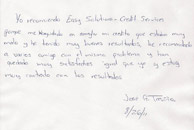 Yo recomiendo Easy Solutions Credit Services
porque me ayudado a arreglar mi credito que estaba muy
malo y he tenido muy buenos resultados, he recomendado
a varios amigos con el mismo problema y han
quedado muy satisfechos igual que yo y estoy
muy contento con los resultados
Jose G.